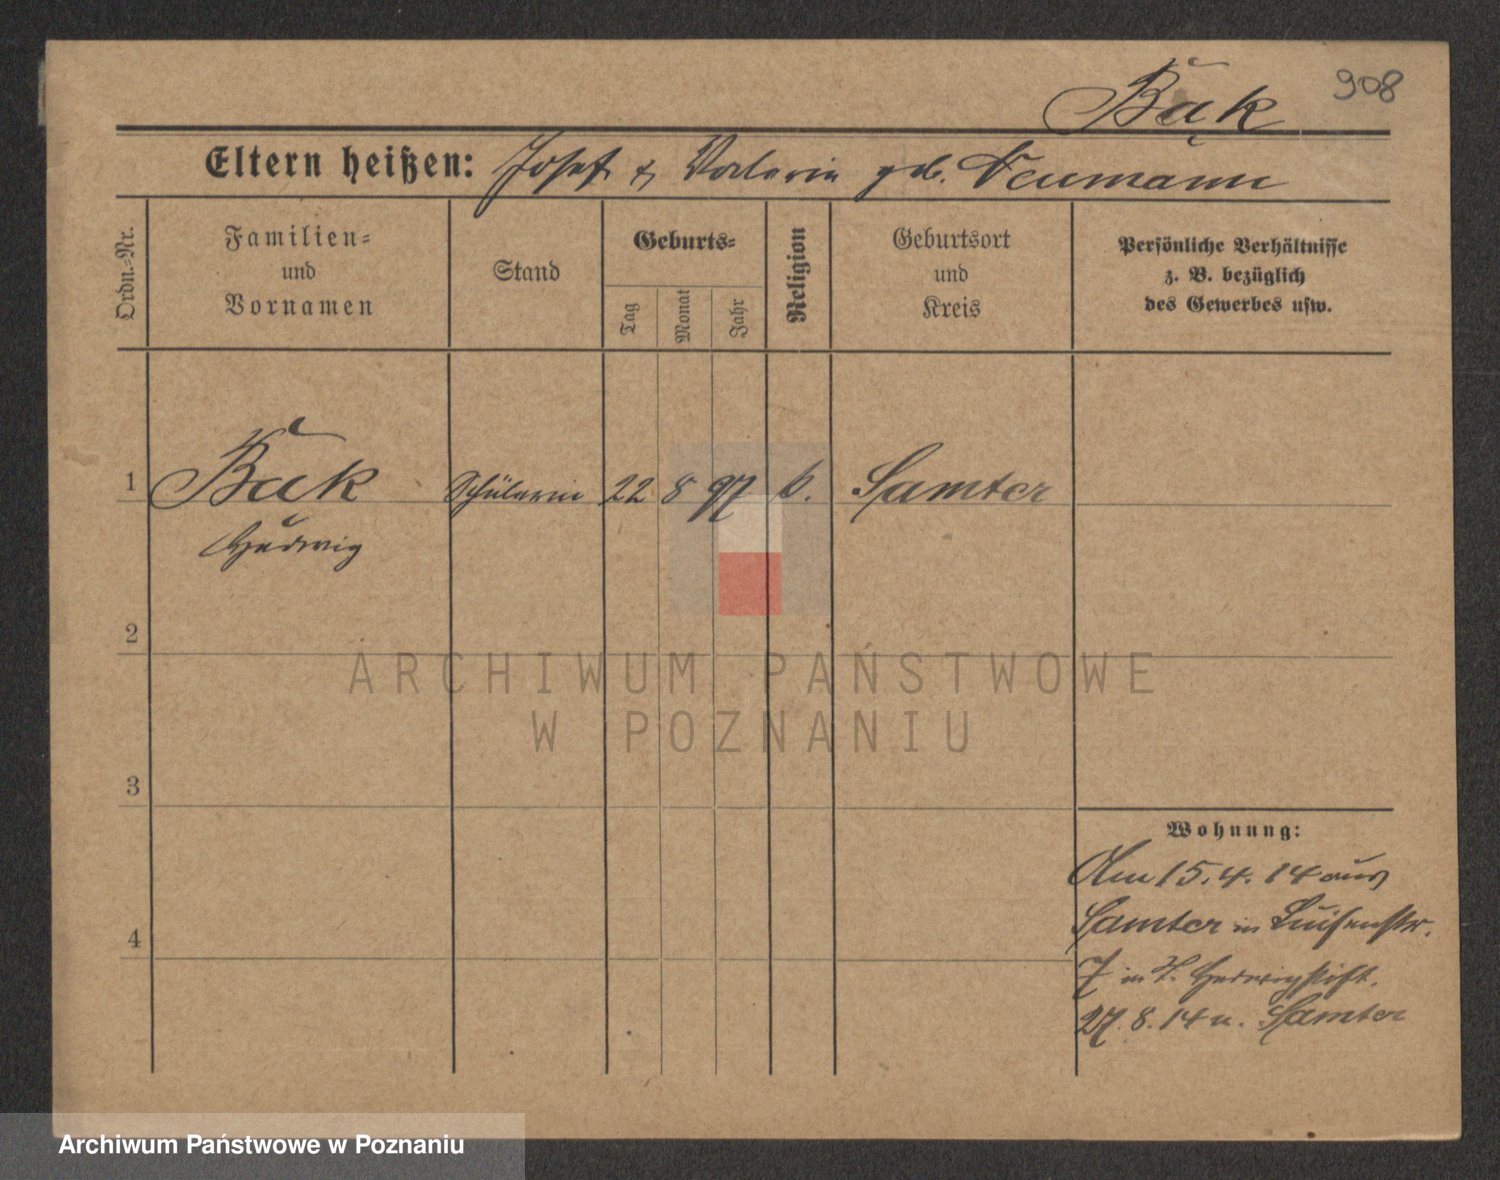 908
Bąk
Eltern heißen: Josef & Valerie geb. Neumann
Ordn.-Nr.
Familien-
und
Vornamen
Stand
Geburts-
Tag
Monat
Jahr
Religion
Geburtsort
und
Kreis
Persönliche Verhältnisse
z. B. bezüglich
des Gewerbes usw.
1 Bak Schülerin 22 8 97 k. Samter
Hedwig
2
3
4
Wohnung:
Am 15.4.14 aus
Samter in Luisenstr.
7 in Hedwigstift.
27.8.14 n. Samter
ARCHIWUM PAŃSTWOWE
W POZNANIU
Archiwum Państwowe w Poznaniu